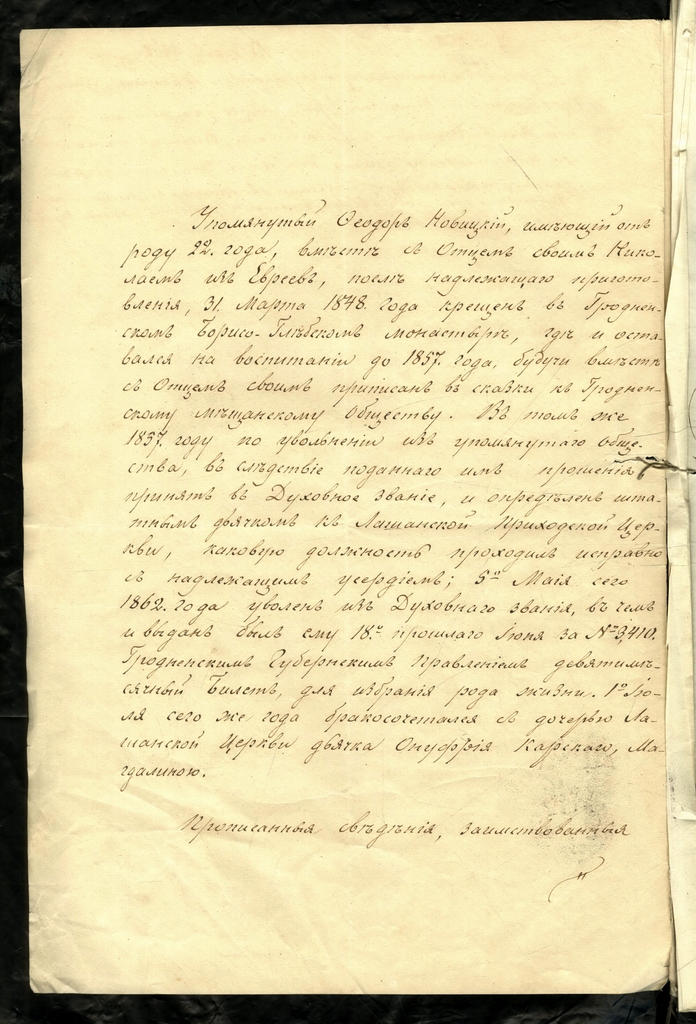 Упомянутый Ѳеодоръ Новицкій, имѣющій отъ
роду 22. года, вмѣстѣ съ Отцемъ своимъ Нико-
лаемъ изъ Евреевъ, послѣ надлежащаго пригото-
вленія, 31. Марта 1848. года крещенъ въ Гроднен-
скомъ Борисо-Глѣбскомъ монастырѣ, гдѣ и оста-
вался на воспитаніи до 1857. года, будучи вмѣстѣ
съ Отцемъ своимъ приписанъ въ сказки къ Гроднен-
скому мѣщанскому Обществу. Въ томъ же
1857. году по увольненіи изъ упомянутаго Обще-
ства, въ слѣдствіе поданнаго имъ прошенія
принятъ въ Духовное званіе, и опредѣленъ шта-
тнымъ дьячкомъ къ Лашанской Приходской Цер-
кви, каковую должность проходилъ исправно
съ надлежащимъ усердіемъ; 5го Маія сего
1862. года уволенъ изъ Духовнаго званія, въ чемъ
и выданъ былъ ему 18.го прошлаго Іюня за № 3,410.
Гродненскимъ Губернскимъ Правленіемъ девятимѣ-
сячный Билетъ, для избранія рода жизни. 1го Ію-
ля сего же года бракосочетался съ дочерью Ла-
шанской Церкви дьячка Онуфрія Карскаго, Ма-
гдалиною.
Прописанныя свѣдѣнія, заимствованныя